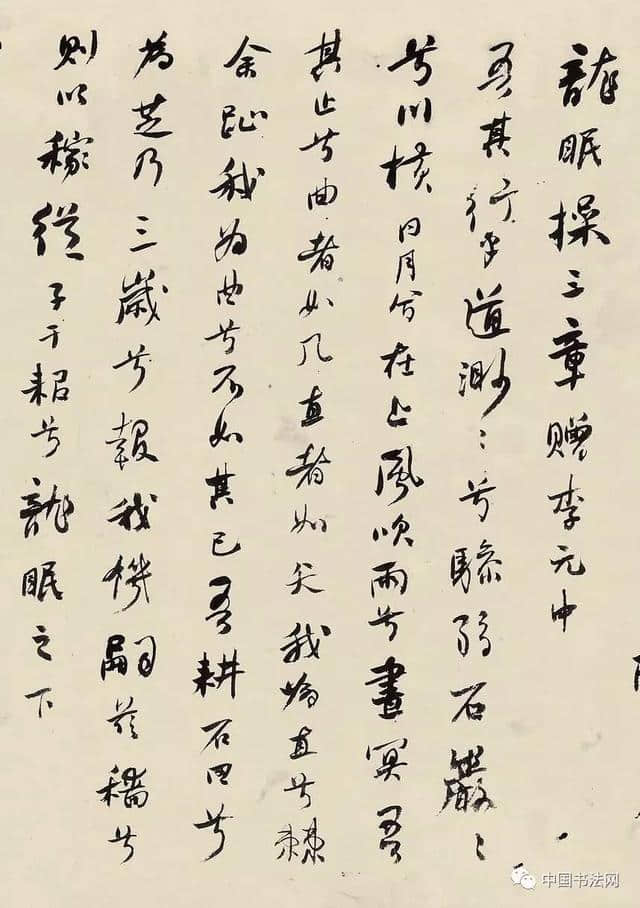 龍眠操三章贈李元中
吾其行乎道渺〻兮驂弱石巖〻
兮川橫日月兮在上風吹雨兮晝冥吾
其止兮曲者如几直者如矢我為直兮棘
余趾我為曲兮不如其已吾耕石田兮
為芝乃三歲兮報我機嗣茲穡兮
則以稼從子于耜兮龍眠之下
中国书法网